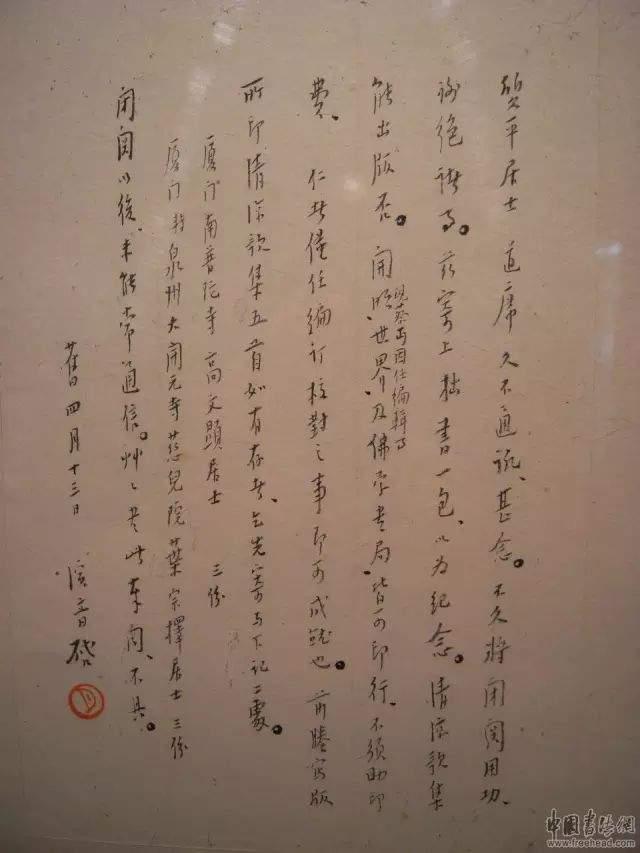 质平居士 道席 久不通讯、甚念。不久将闭关用功、
谢绝诸事。兹寄上拙书一包、以为纪念。清凉歌集
能出版否。开明、世界、及佛学书局、皆可印行、不须助印
现蔡丏因任编辑事
费、 仁者仅任编订校对之事即可成就也。前謄写版
所印清凉歌集五首如有存者、乞先寄与下记二处。
厦门南普陀寺 高文顕居士 三份
厦门转泉州大开元寺慈儿院葉宗择居士 三份
闭関以後、未能常通信。草々书此奉闻、不具。
舊四月十三日 演音启
中国书法网
www.freehead.com